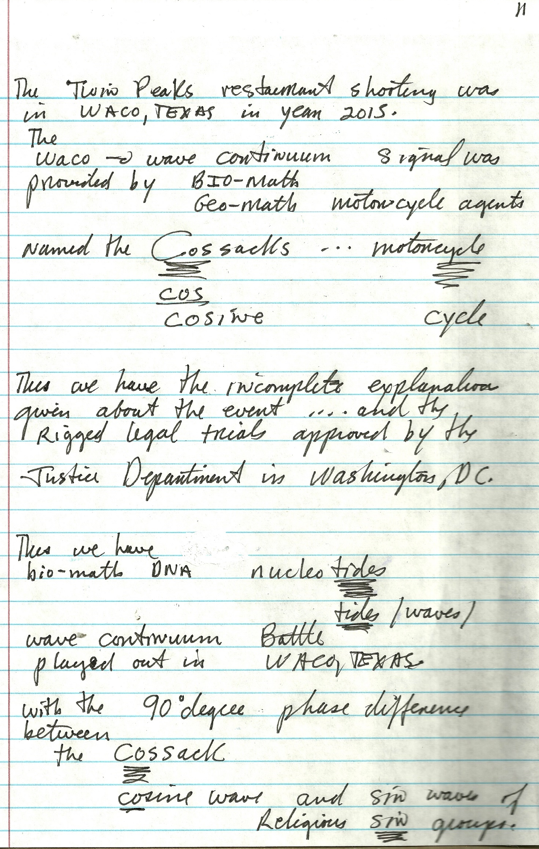 11
The Twin Peaks restaurant shooting was
in WACO, TEXAS in year 2015.
The
Waco → wave continuum signal was
provided by BIO-math
Geo-math motorcycle agents
named the Cossacks ... motorcycle
cos
cosine cycle
Thus we have the incomplete explanation
given about the event .... and the
Rigged legal trials approved by the
Justice Department in Washington, DC.
Thus we have
bio-math DNA nucleotides
tides /waves/
wave continuum Battle
played out in WACO, TEXAS
with the 90° degree phase difference
between
the Cossack
cosine wave and sin waves of
Religious sin groups.